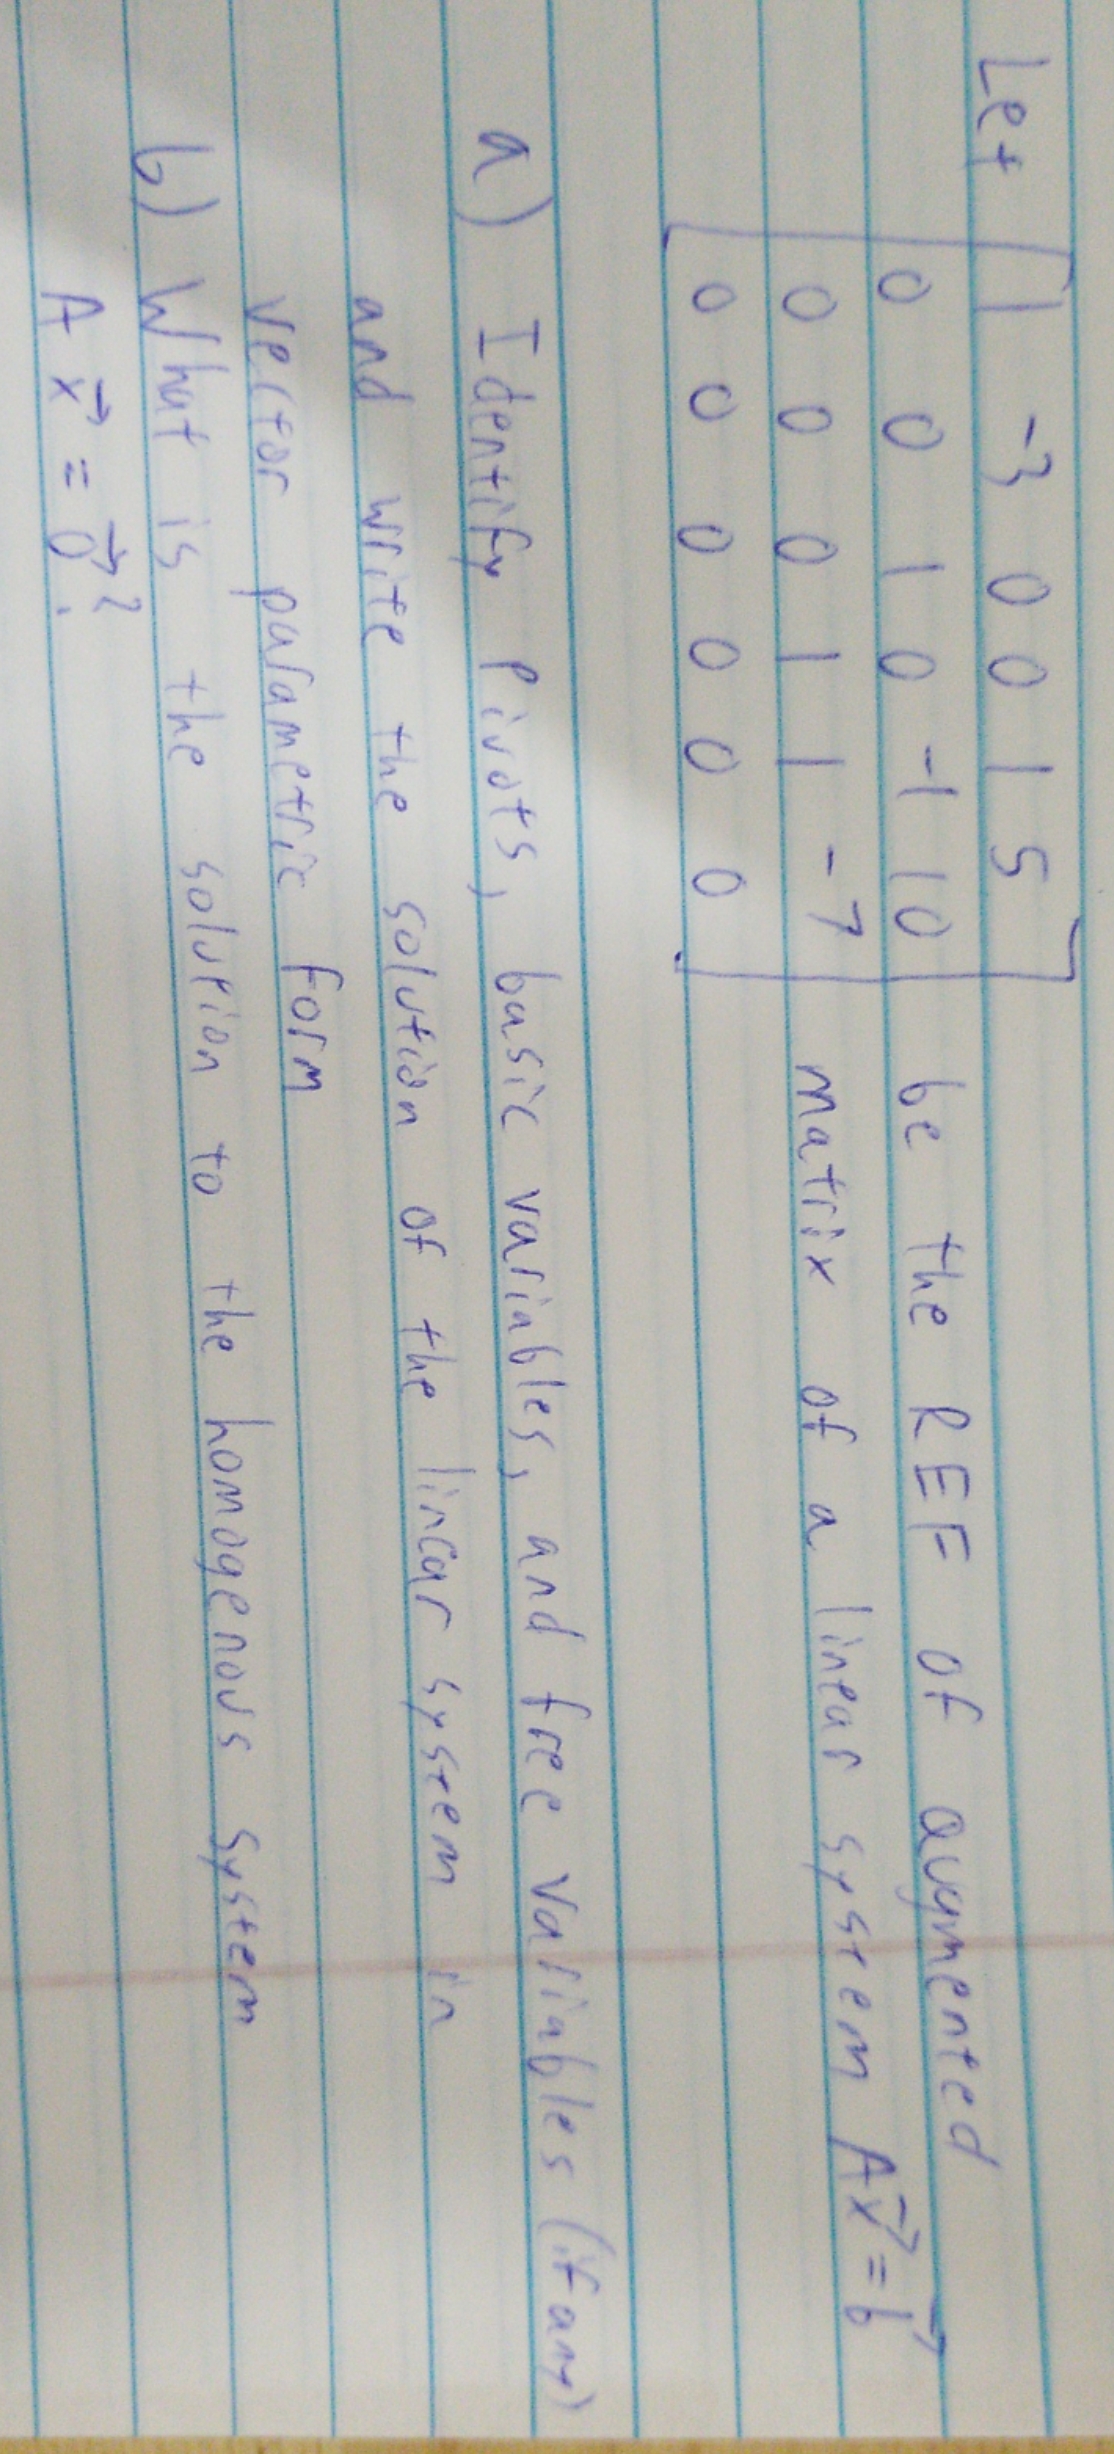 Let [ 1 -3 0 0 1 5
0 0 1 0 -1 10 be the REF of augmented
0 0 0 1 1 -7 matrix of a linear system Ax⃗ = b⃗
0 0 0 0 0 0 ]
a) Identify Pivots, basic variables, and free variables (if any)
and write the solution of the linear system in
vector parametric form
b) What is the solution to the homogenous system
Ax⃗ = 0⃗?